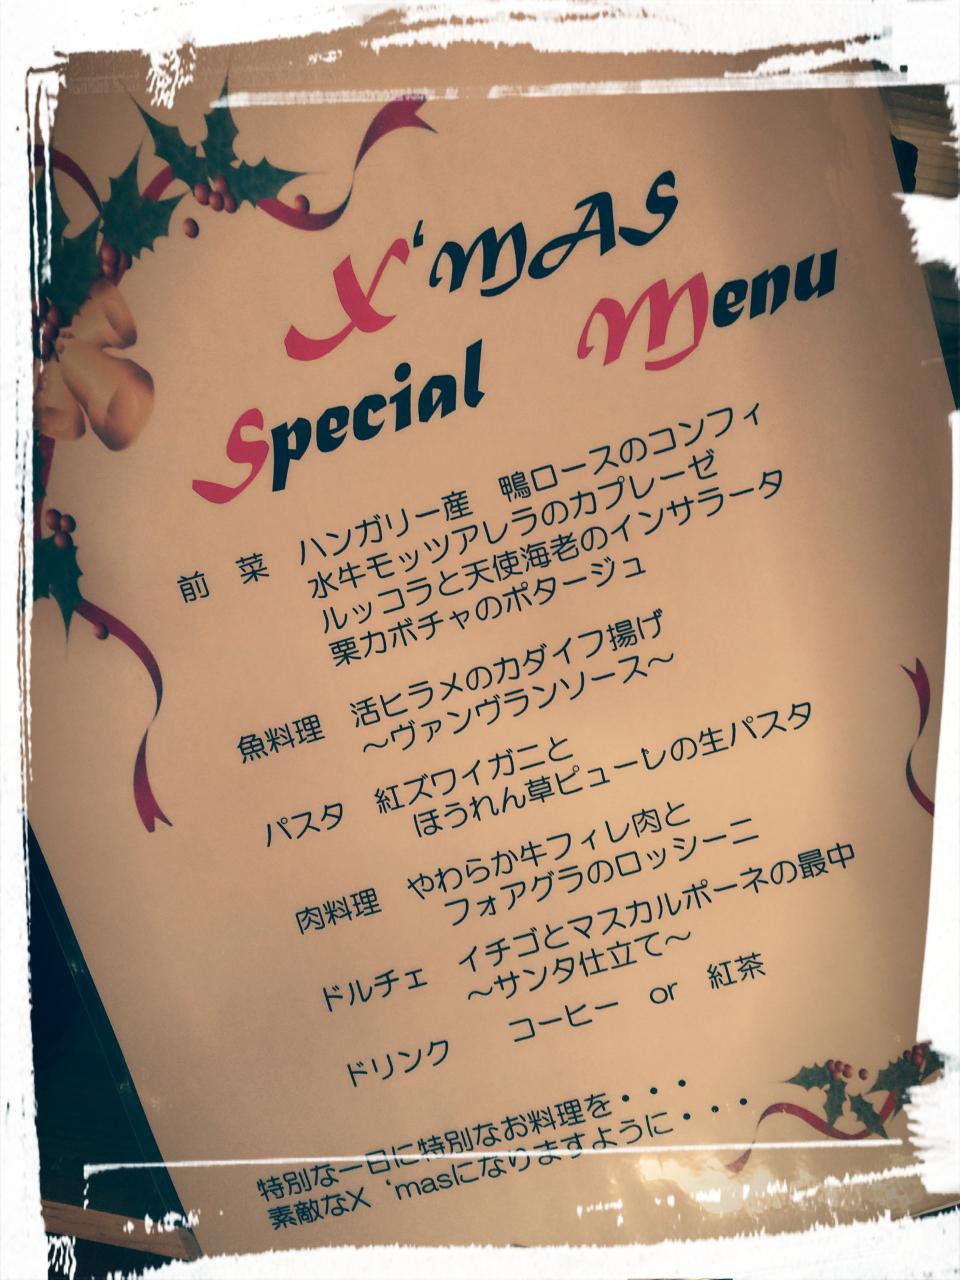 X'MAS
Special Menu
前 菜 ハンガリー産 鴨ロースのコンフィ
水牛モッツアレラのカプレーゼ
ルッコラと天使海老のインサラータ
栗カボチャのポタージュ
魚料理 活ヒラメのカダイフ揚げ
～ヴァンヴランソース～
パスタ 紅ズワイガニと
ほうれん草ピューレの生パスタ
肉料理 やわらか牛フィレ肉と
フォアグラのロッシーニ
ドルチェ イチゴとマスカルポーネの最中
～サンタ仕立て～
ドリンク コーヒー or 紅茶
特別な一日に特別なお料理を・・・
素敵なX 'masになりますように・・・